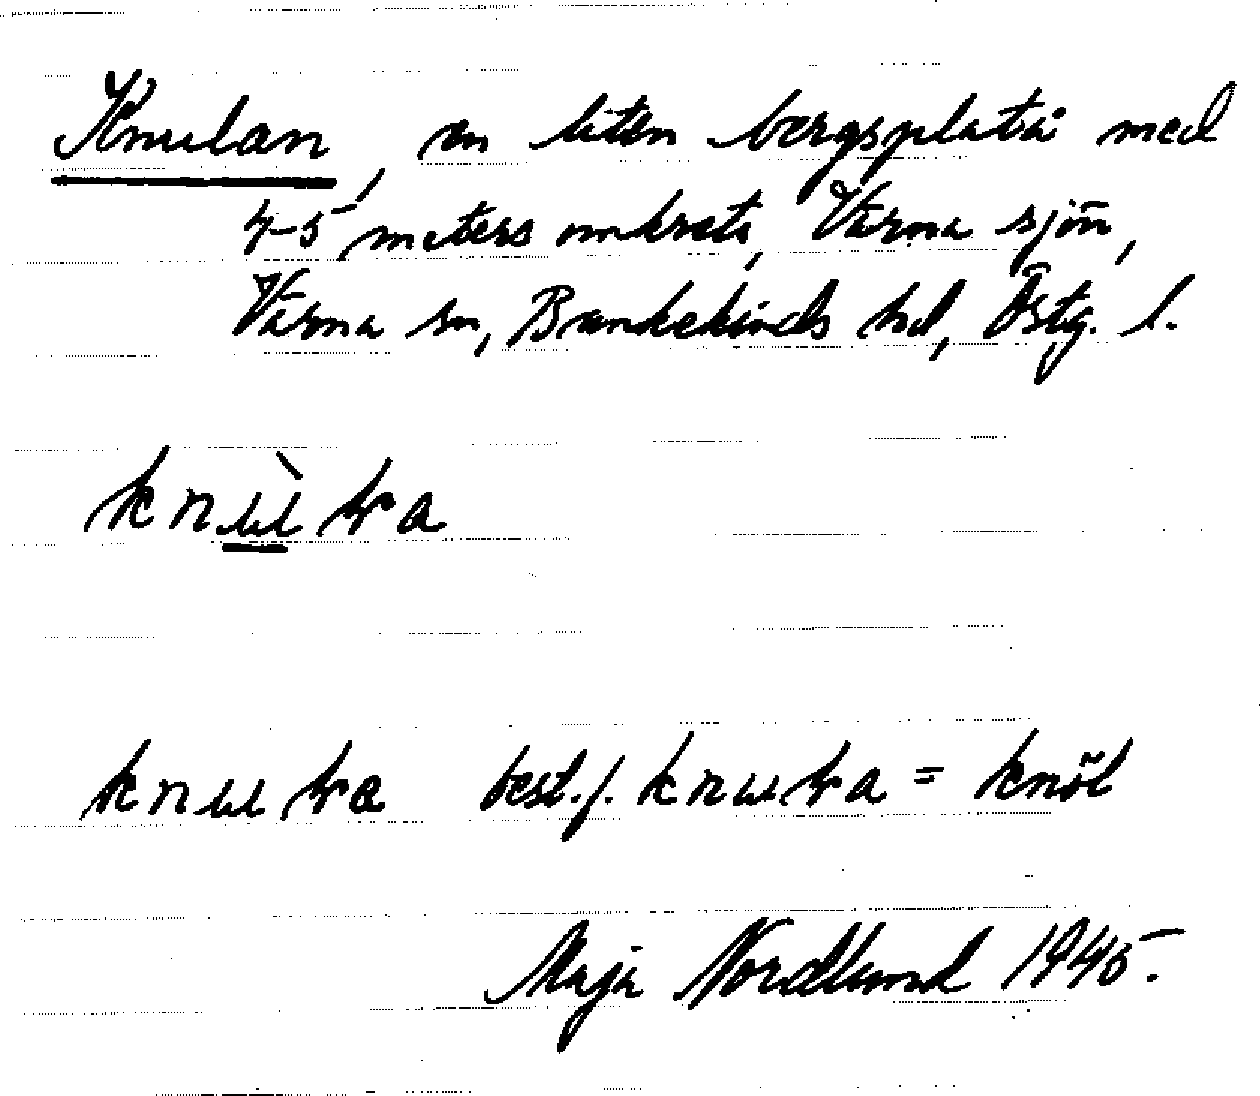 Knulan, en liten bergsplatå med
4-5 meters omkrets, Värna sjön,
Värna sn, Bankekinds hd, Östg. l.
best. f. = knöl
Maja Nordlund 1945.